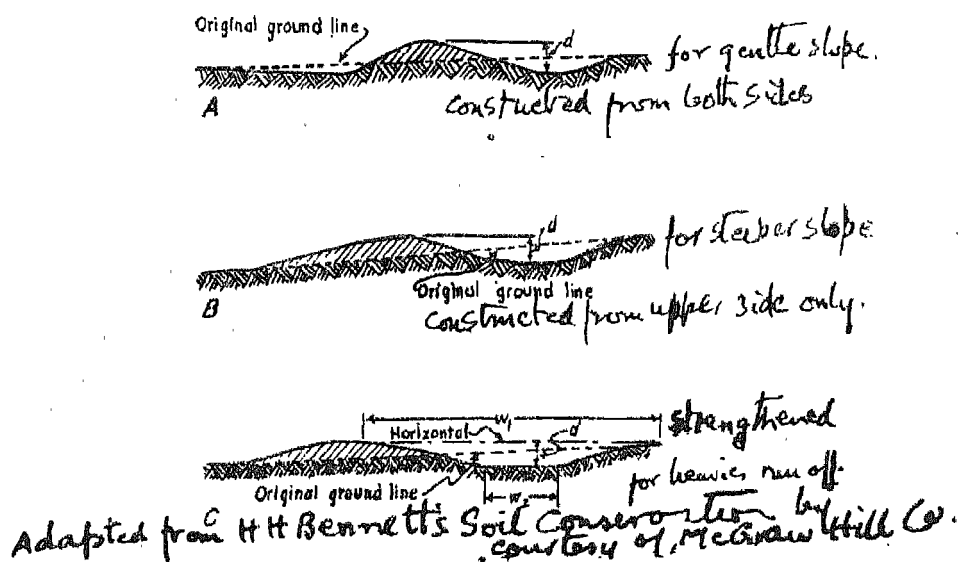 Original ground line
d
for gentle slope.
A
Constucted from both sides
d
for steeper slope
Original ground line
B
Constructed from upper side only.
W₁
strengthened
Horizontal
d
for heavier run off.
Original ground line
W₂
C
Adapted from H H Bennett's Soil Conservation by
courtesy of McGraw Hill Co.